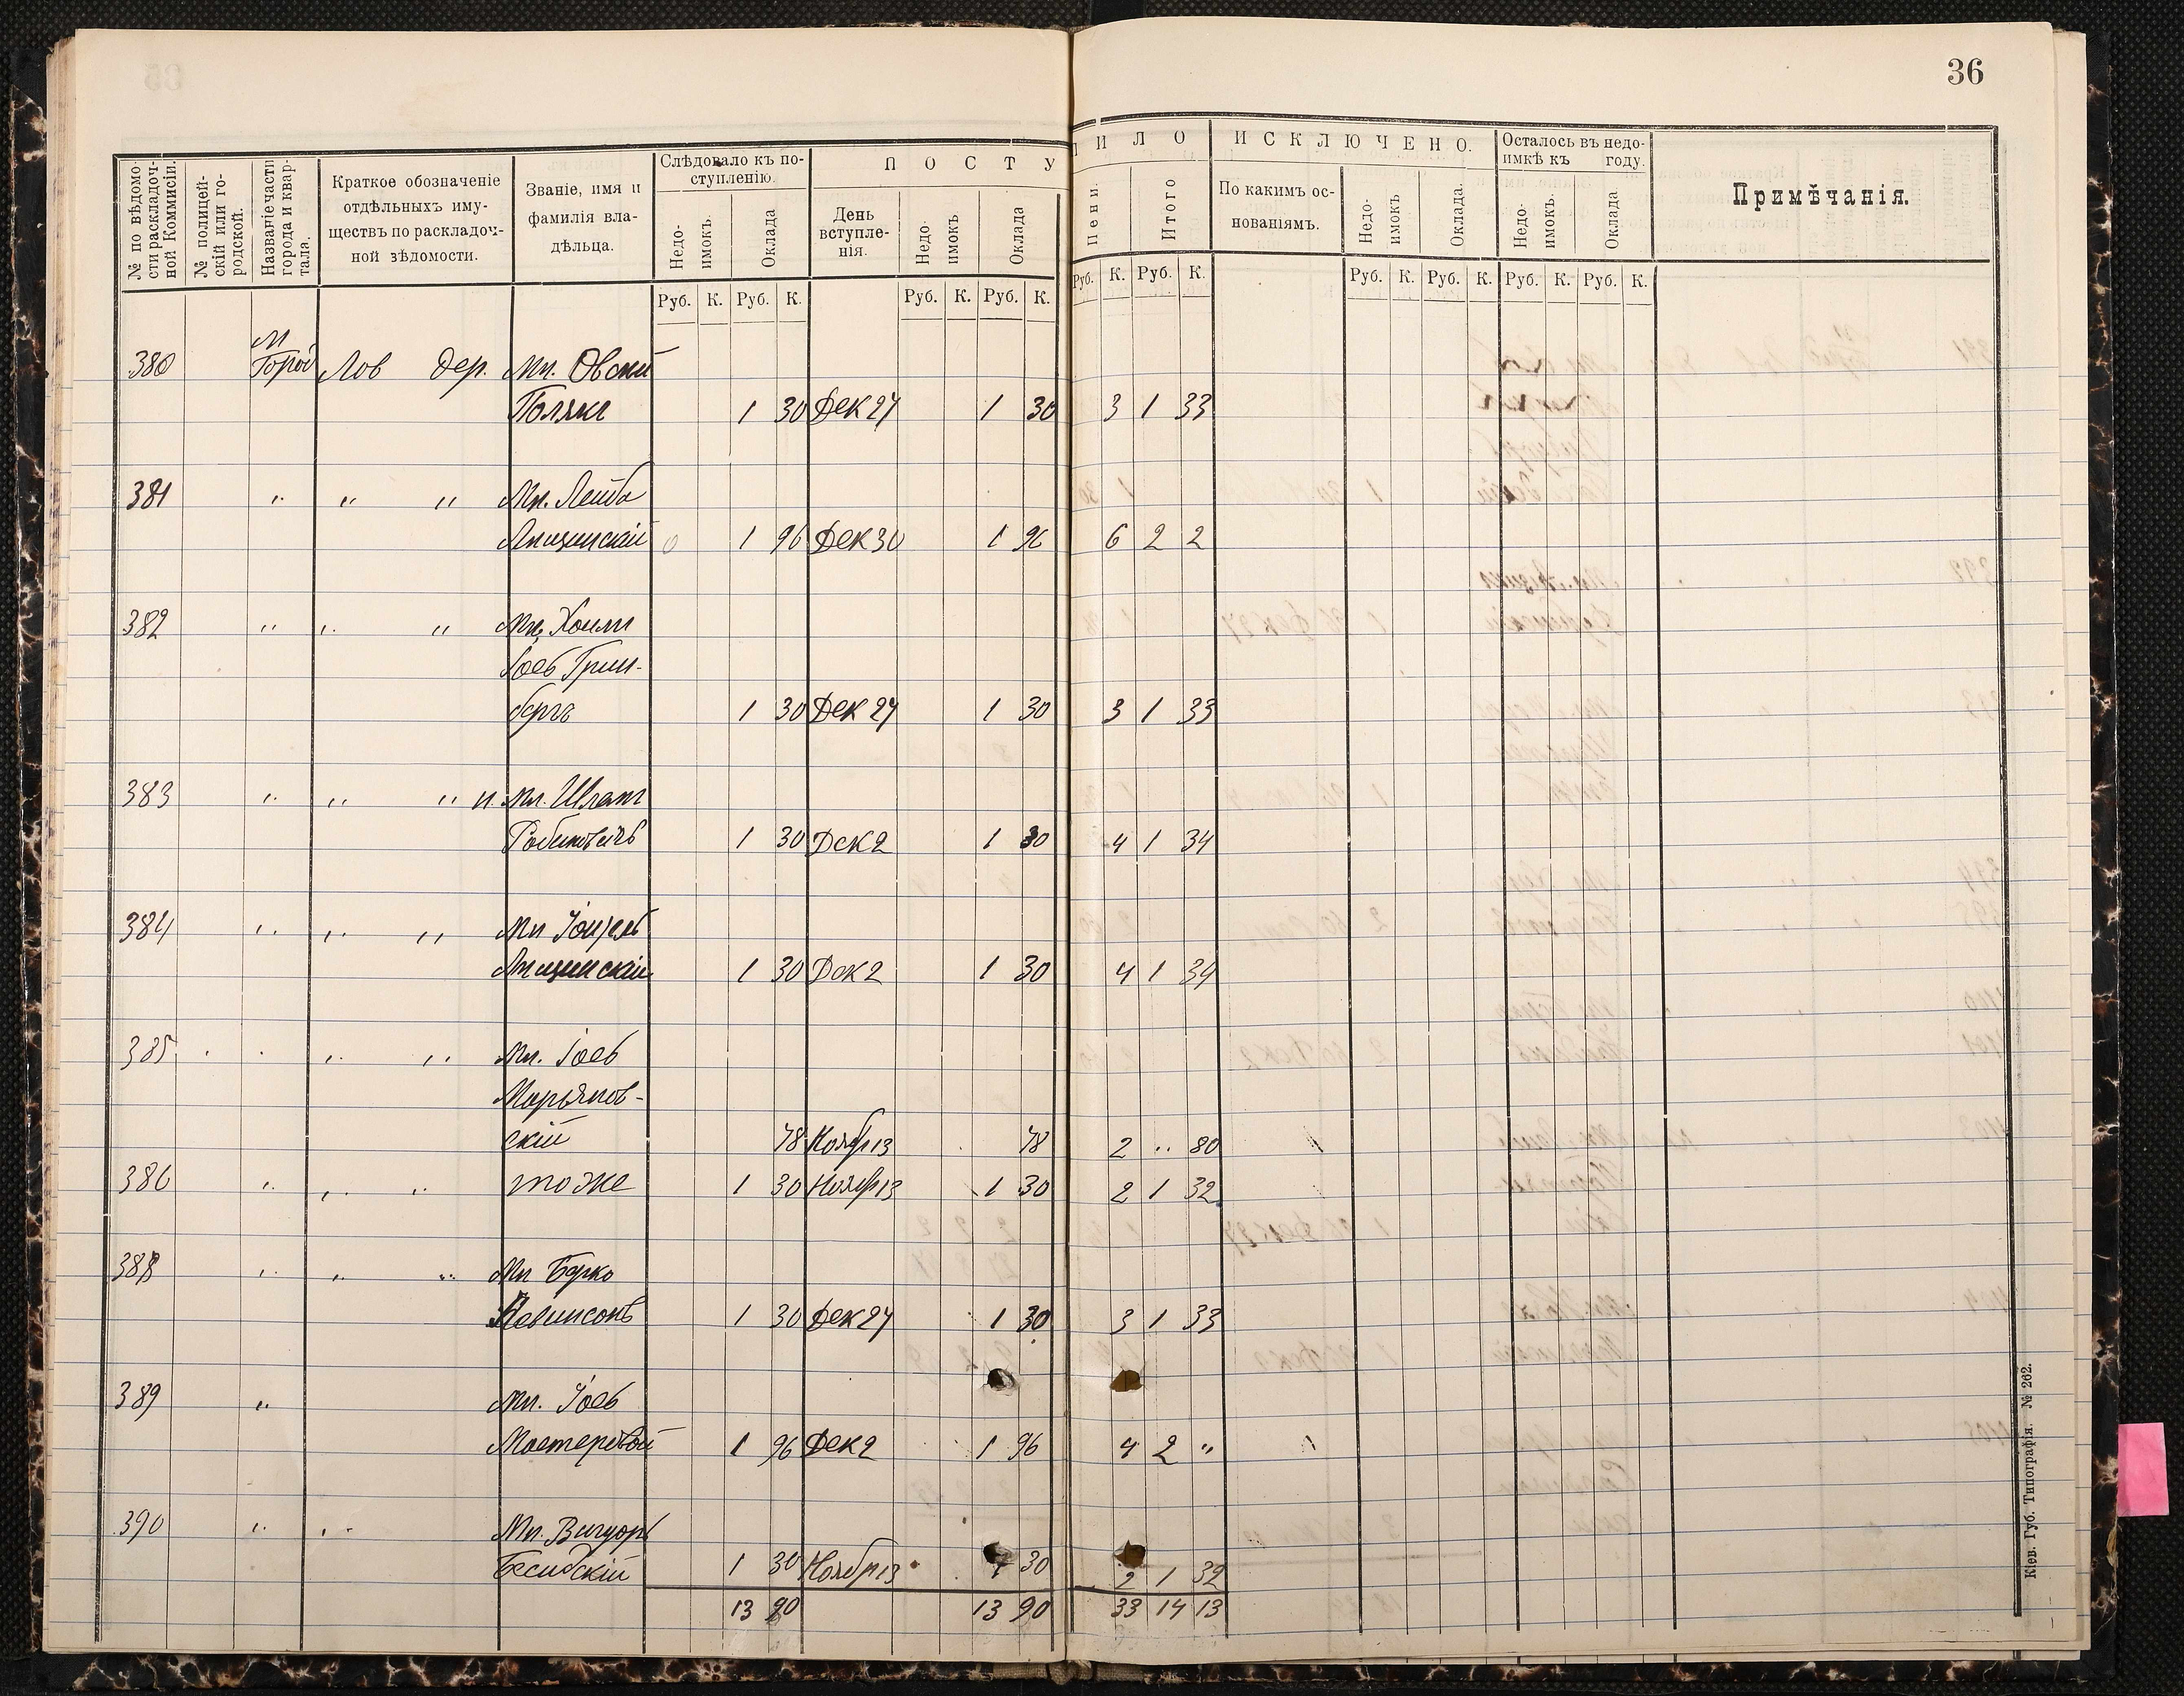 36
№ по вѣдомости раскладочной Коммисіи.
№ полицейскій или городской.
Названіе части города и квартала.
Краткое обозначеніе отдѣльныхъ имуществъ по раскладочной вѣдомости.
Званіе, имя и фамилія владѣльца.
Слѣдовало къ поступленію.
Недоимокъ. Оклада
ПОСТУПИЛО
День вступленія.
Недоимокъ Оклада Пени. Итого
ИСКЛЮЧЕНО.
По какимъ основаніямъ.
Недоимокъ Оклада.
Осталось въ недоимкѣ къ году.
Недоимокъ. Оклада
Примѣчанія.
Руб. К. Руб. К. Руб. К. Руб. К. Руб. К. Руб. К. Руб. К. Руб. К. Руб. К. Руб. К.
М
380 Город Лав дер. Мщ. Овсій
Поляка 1 30 Дек 27 1 30 3 1 33
381 " " " Мщ. Лейба
Лищинскій 1 96 Дек 30 1 96 6 2 2
382 " " " Мщ. Хаим
Іось Грин-
бергъ 1 30 Дек 27 1 30 3 1 33
383 " " " Мщ.
Рабиновичъ 1 30 Дек 2 1 30 4 1 34
384 " " " Мщ
Лищинскій 1 30 Дек 2 1 30 4 1 34
385 " " Мщ. Іось
Марьянов-
скій 78 Ноябр 13 78 2 " 80
386 " " " тоже 1 30 Ноябр 13 1 30 2 1 32
388 " " " Мщ Берко
Левинсонъ 1 30 Дек 27 1 30 3 1 33
389 " Мщ. Іось
Мастеровой 1 96 Дек 2 1 96 4 2 "
390 " " Мщ.
1 30 Ноябр 13 1 30 2 1 32
13 90 13 90 33 14 13
Кіев. Губ. Типографія. № 262.